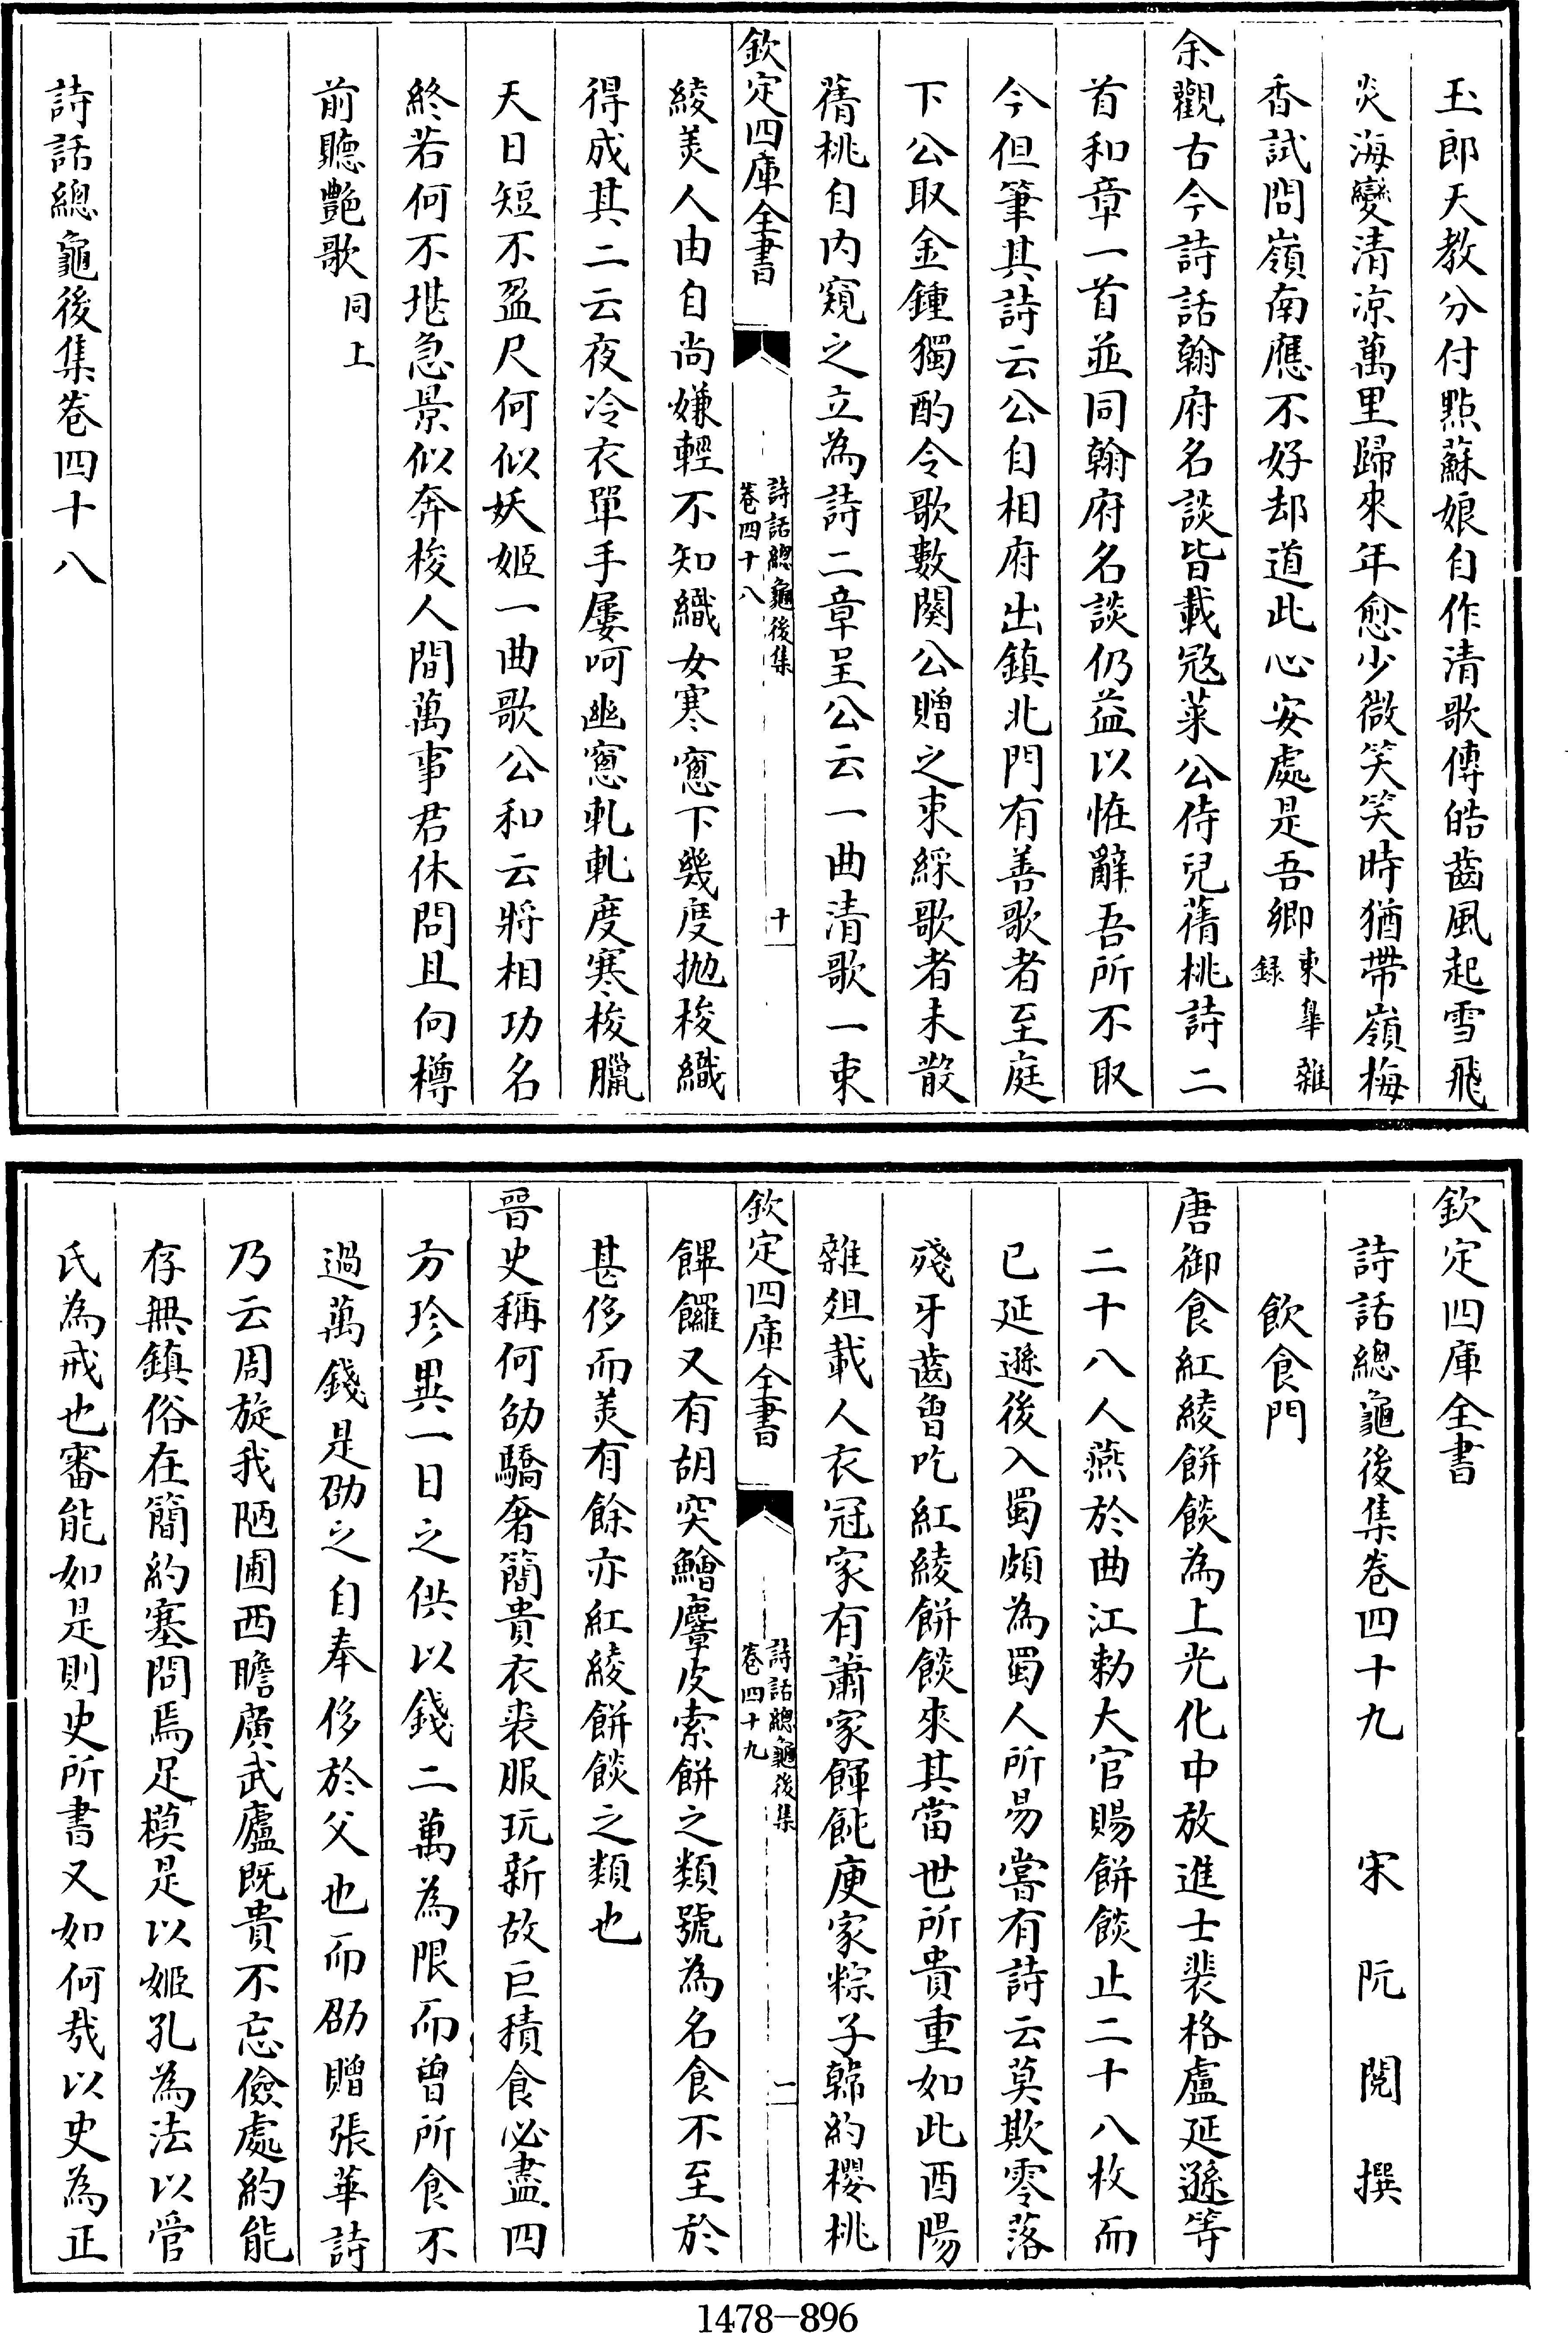 玉郎天教分付點蘇娘自作清歌傳皓齒風起雪飛
炎海變清凉萬里歸來年愈少微笑笑時猶帶嶺梅
香試問嶺南應不好却道此心安處是吾鄉東臯雜錄
余觀古今詩話翰府名談皆載冦萊公侍兒蒨桃詩二
首和章一首並同翰府名談仍益以恠辭吾所不取
今但筆其詩云公自相府出鎮北門有善歌者至庭
下公取金鍾獨酌令歌數闋公贈之束綵歌者未散
蒨桃自内窺之立為詩二章呈公云一曲清歌一束
欽定四庫全書
詩話總龜後集
卷四十八
十
綾美人由自尚嫌輕不知織女寒窻下幾度拋梭織
得成其二云夜冷衣單手屢呵幽窻軋軋度寒梭臘
天日短不盈尺何似妖姬一曲歌公和云將相功名
終若何不堪急景似奔梭人間萬事君休問且向樽
前聽艶歌同上
詩話總龜後集卷四十八
欽定四庫全書
詩話總龜後集卷四十九 宋 阮閱 撰
飲食門
唐御食紅綾餅餤為上光化中放進士裴格盧延遜等
二十八人燕於曲江勅大官賜餅餤止二十八枚而
已延遜後入蜀頗為蜀人所易嘗有詩云莫欺零落
殘牙齒曾吃紅綾餅餤來其當世所貴重如此酉陽
雜俎載人衣冠家有蕭家餫飩庾家粽子韓約櫻桃
欽定四庫全書
詩話總龜後集
卷四十九
一
饆饠又有胡突鱠麞皮索餅之類號為名食不至於
甚侈而美有餘亦紅綾餅餤之類也
晉史稱何劭驕奢簡貴衣裘服玩新故巨積食必盡四
方珍異一日之供以錢二萬為限而曾所食不
過萬錢是劭之自奉侈於父也而劭贈張華詩
乃云周旋我陋圃西瞻廣武廬既貴不忘儉處約能
存無鎮俗在簡約塞問焉足模是以姬孔為法以管
氏為戒也審能如是則史所書又如何哉以史為正
1478-896